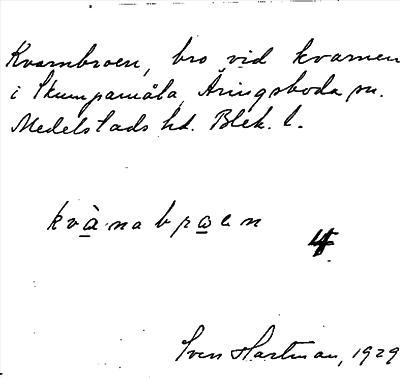 Kvarnbroen, bro vid kvarnen
i Skumpamåla, Åringsboda sn.
Medelstads hd. Blek. l.
kvàna bræen
4
Sven Hartman, 1929